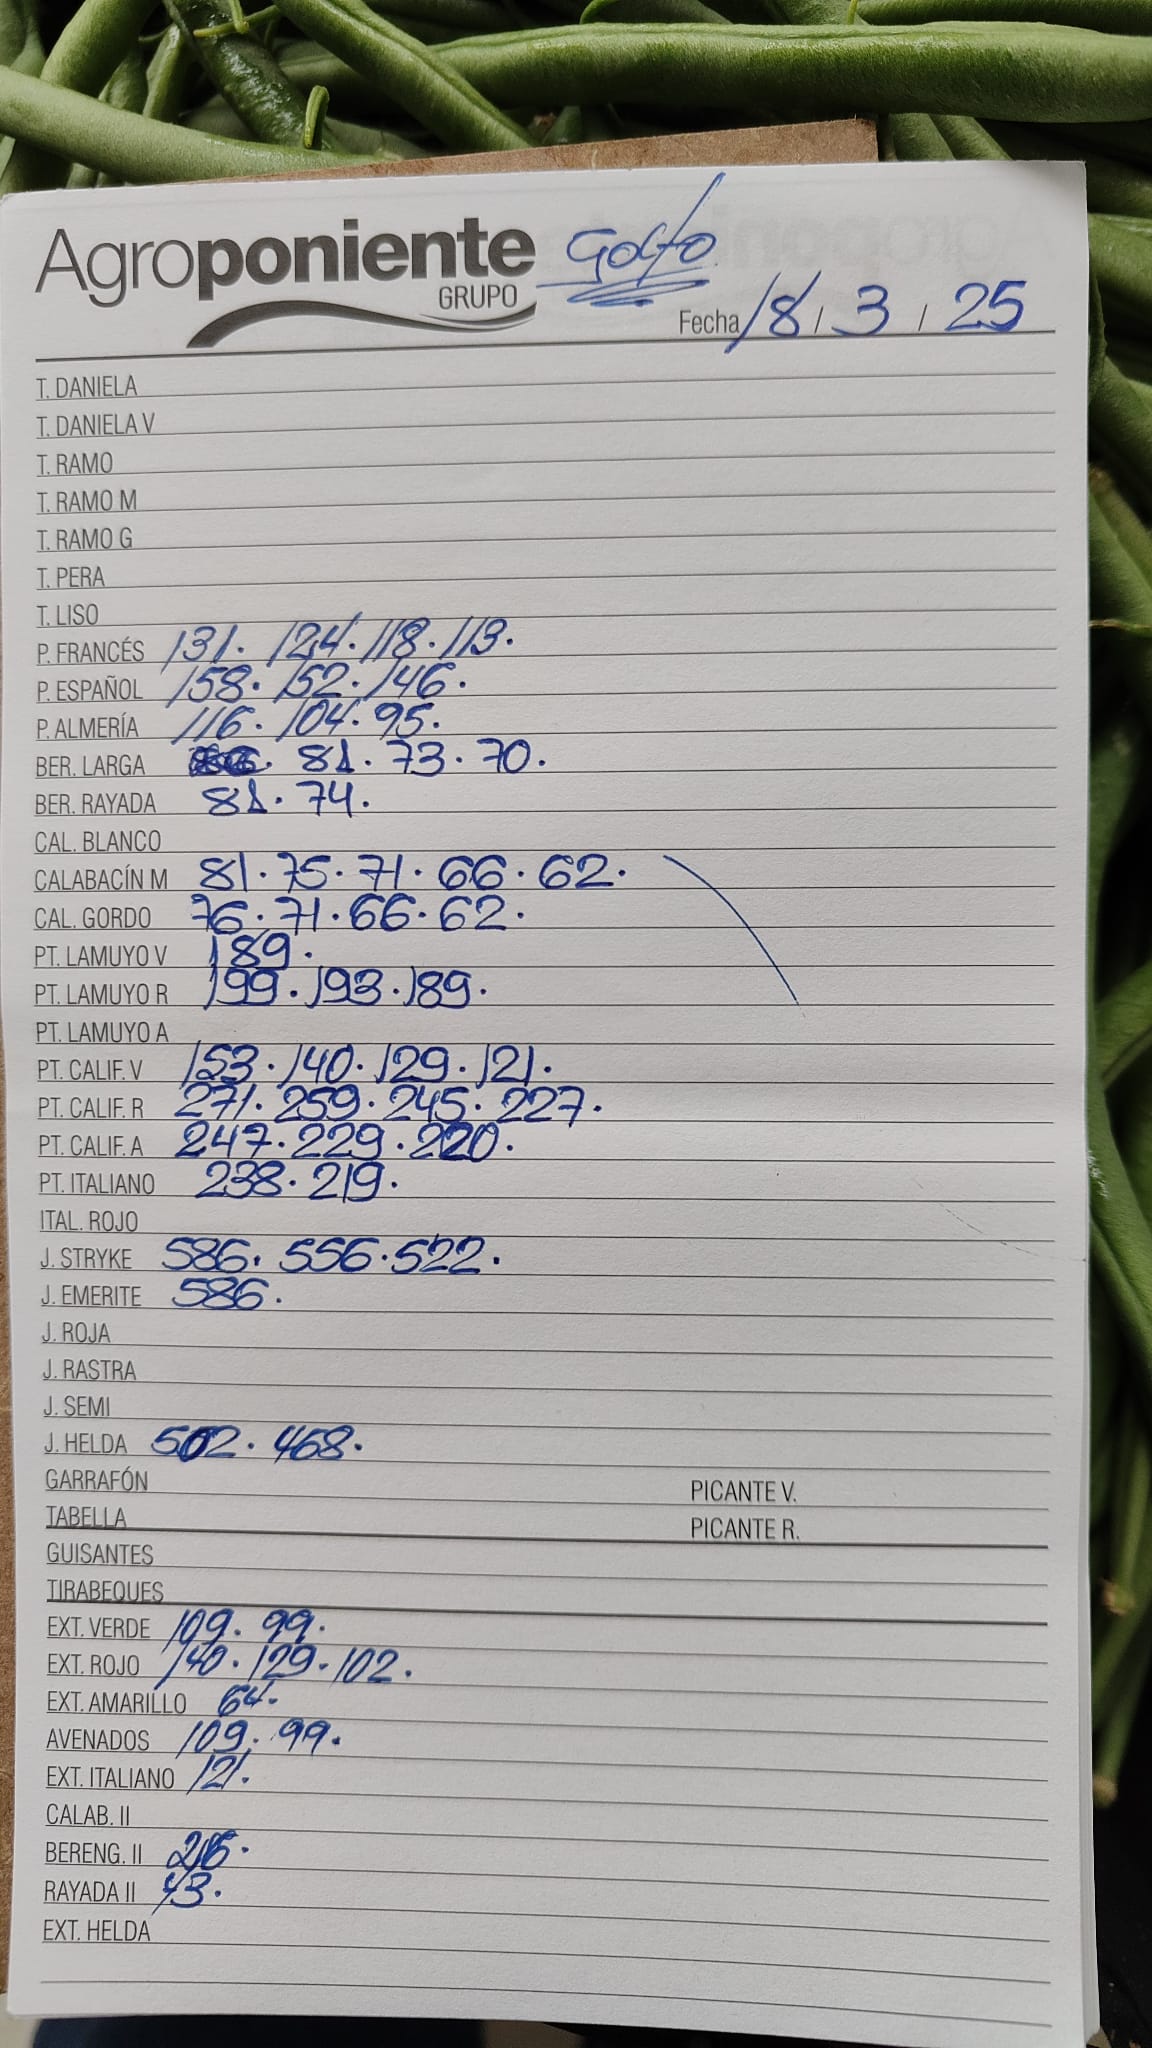 Agroponiente Golfo
GRUPO
Fecha 18 / 3 / 25
T. DANIELA
T. DANIELA V
T. RAMO
T. RAMO M
T. RAMO G
T. PERA
T. LISO
P. FRANCÉS 131. 124. 118. 113.
P. ESPAÑOL 158. 152. 146.
P. ALMERÍA 116. 104. 95.
BER. LARGA 81. 73. 70.
BER. RAYADA 81. 74.
CAL. BLANCO
CALABACÍN M 81. 75. 71. 66. 62.
CAL. GORDO 76. 71. 66. 62.
PT. LAMUYO V 189.
PT. LAMUYO R 199. 193. 189.
PT. LAMUYO A
PT. CALIF. V 153. 140. 129. 121.
PT. CALIF. R 271. 259. 245. 227.
PT. CALIF. A 247. 229. 220.
PT. ITALIANO 238. 219.
ITAL. ROJO
J. STRYKE 586. 556. 522.
J. EMERITE 586.
J. ROJA
J. RASTRA
J. SEMI
J. HELDA 502. 468.
GARRAFÓN PICANTE V.
TABELLA PICANTE R.
GUISANTES
TIRABEQUES
EXT. VERDE 109. 99.
EXT. ROJO 140. 129. 102.
EXT. AMARILLO 64.
AVENADOS 109. 99.
EXT. ITALIANO 121.
CALAB. II
BERENG. II
RAYADA II 43.
EXT. HELDA